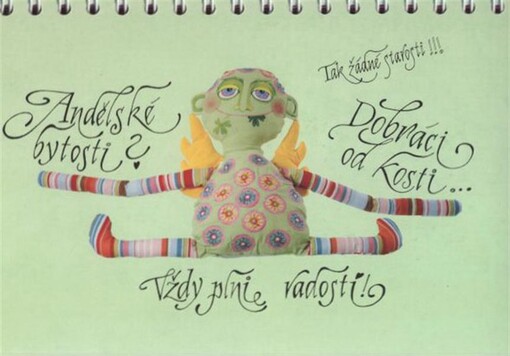 Tak žádné starosti!!!
Andělské
bytosti?
Dobráci
od kosti...
Vždy plni radosti!